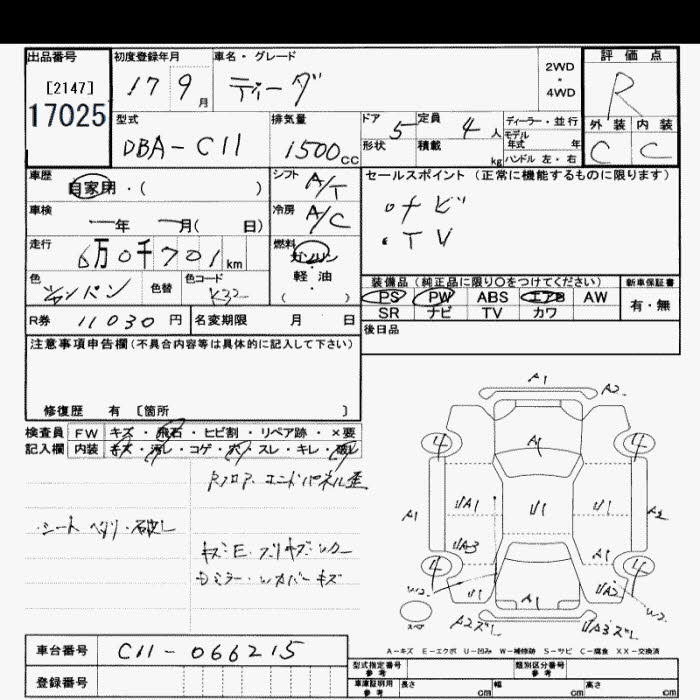 出品番号
[2147]
17025
初度登録年月
17 9月
車名・グレード
ティーダ
2WD
・
4WD
評価点
R
外装 内装
C C
型式
DBA-C11
排気量
1500cc
ドア 5
形状
定員 4人
積載 kg
ディーラー・並行
モデル
年式 年
ハンドル 左・右
車歴
自家用・( )
シフト A/T
車検
年 月( 日)
冷房 A/C
走行
6万0千701km
燃料
ガソリン
軽・油
( )
色
シャンパン
色替
色コード
K32
セールスポイント(正常に機能するものに限ります)
・ナビ
・TV
装備品(純正品に限り○をつけてください)
PS PW ABS エアB AW
SR ナビ TV カワ
新車保証書
有・無
R券 11030円
名変期限 月 日
後日品
注意事項申告欄(不具合内容等は具体的に記入して下さい)
修復歴 有 〔箇所 〕
検査員 FW キズ・飛石・ヒビ割・リペア跡・×要
記入欄 内装 キズ・汚レ・コゲ・穴・スレ・キレ・破レ
Rフロア エンドパネル歪
・シート ヘタリ・破レ
A1
A2
4 4
A1
A1 U/A1 U1 U1 A2
U/A3
A1
4 4
W2 U1 A1 U/A2 W2
スペア
A2ズレ U/A3ズレ
A-キズ E-エクボ U-凹み W-補修跡 S-サビ C-腐食 XX-交換済
車台番号 C11-066215
登録番号
型式指定番号
参考
類別区分番号
参考
車庫証明用
参考
長さ cm 幅 cm 高さ cm